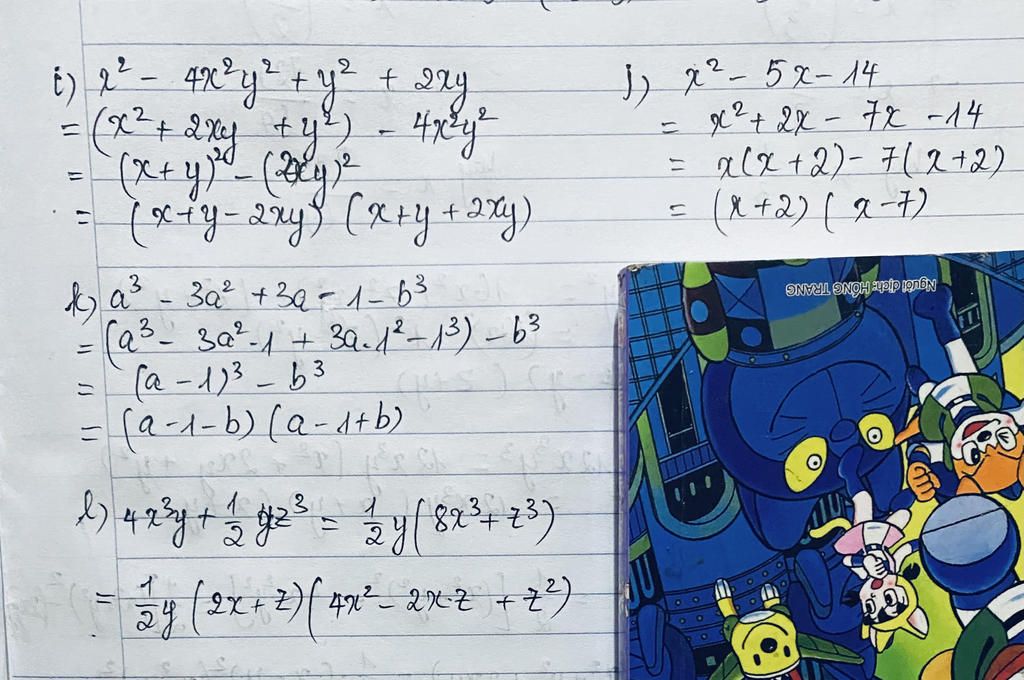 i) x² - 4x²y² + y² + 2xy
= (x² + 2xy + y²) - 4x²y²
= (x+y)² - (2xy)²
= (x+y-2xy) (x+y+2xy)
j) x² - 5x - 14
= x² + 2x - 7x - 14
= x(x+2) - 7(x+2)
= (x+2) (x-7)
k) a³ - 3a² + 3a - 1 - b³
= (a³ - 3a²·1 + 3a·1² - 1³) - b³
= (a-1)³ - b³
= (a-1-b) (a-1+b)
l) 4x³y + 1/2 yz³ = 1/2 y (8x³ + z³)
= 1/2 y (2x+z) (4x² - 2x·z + z²)
Người dịch: HỒNG TRANG